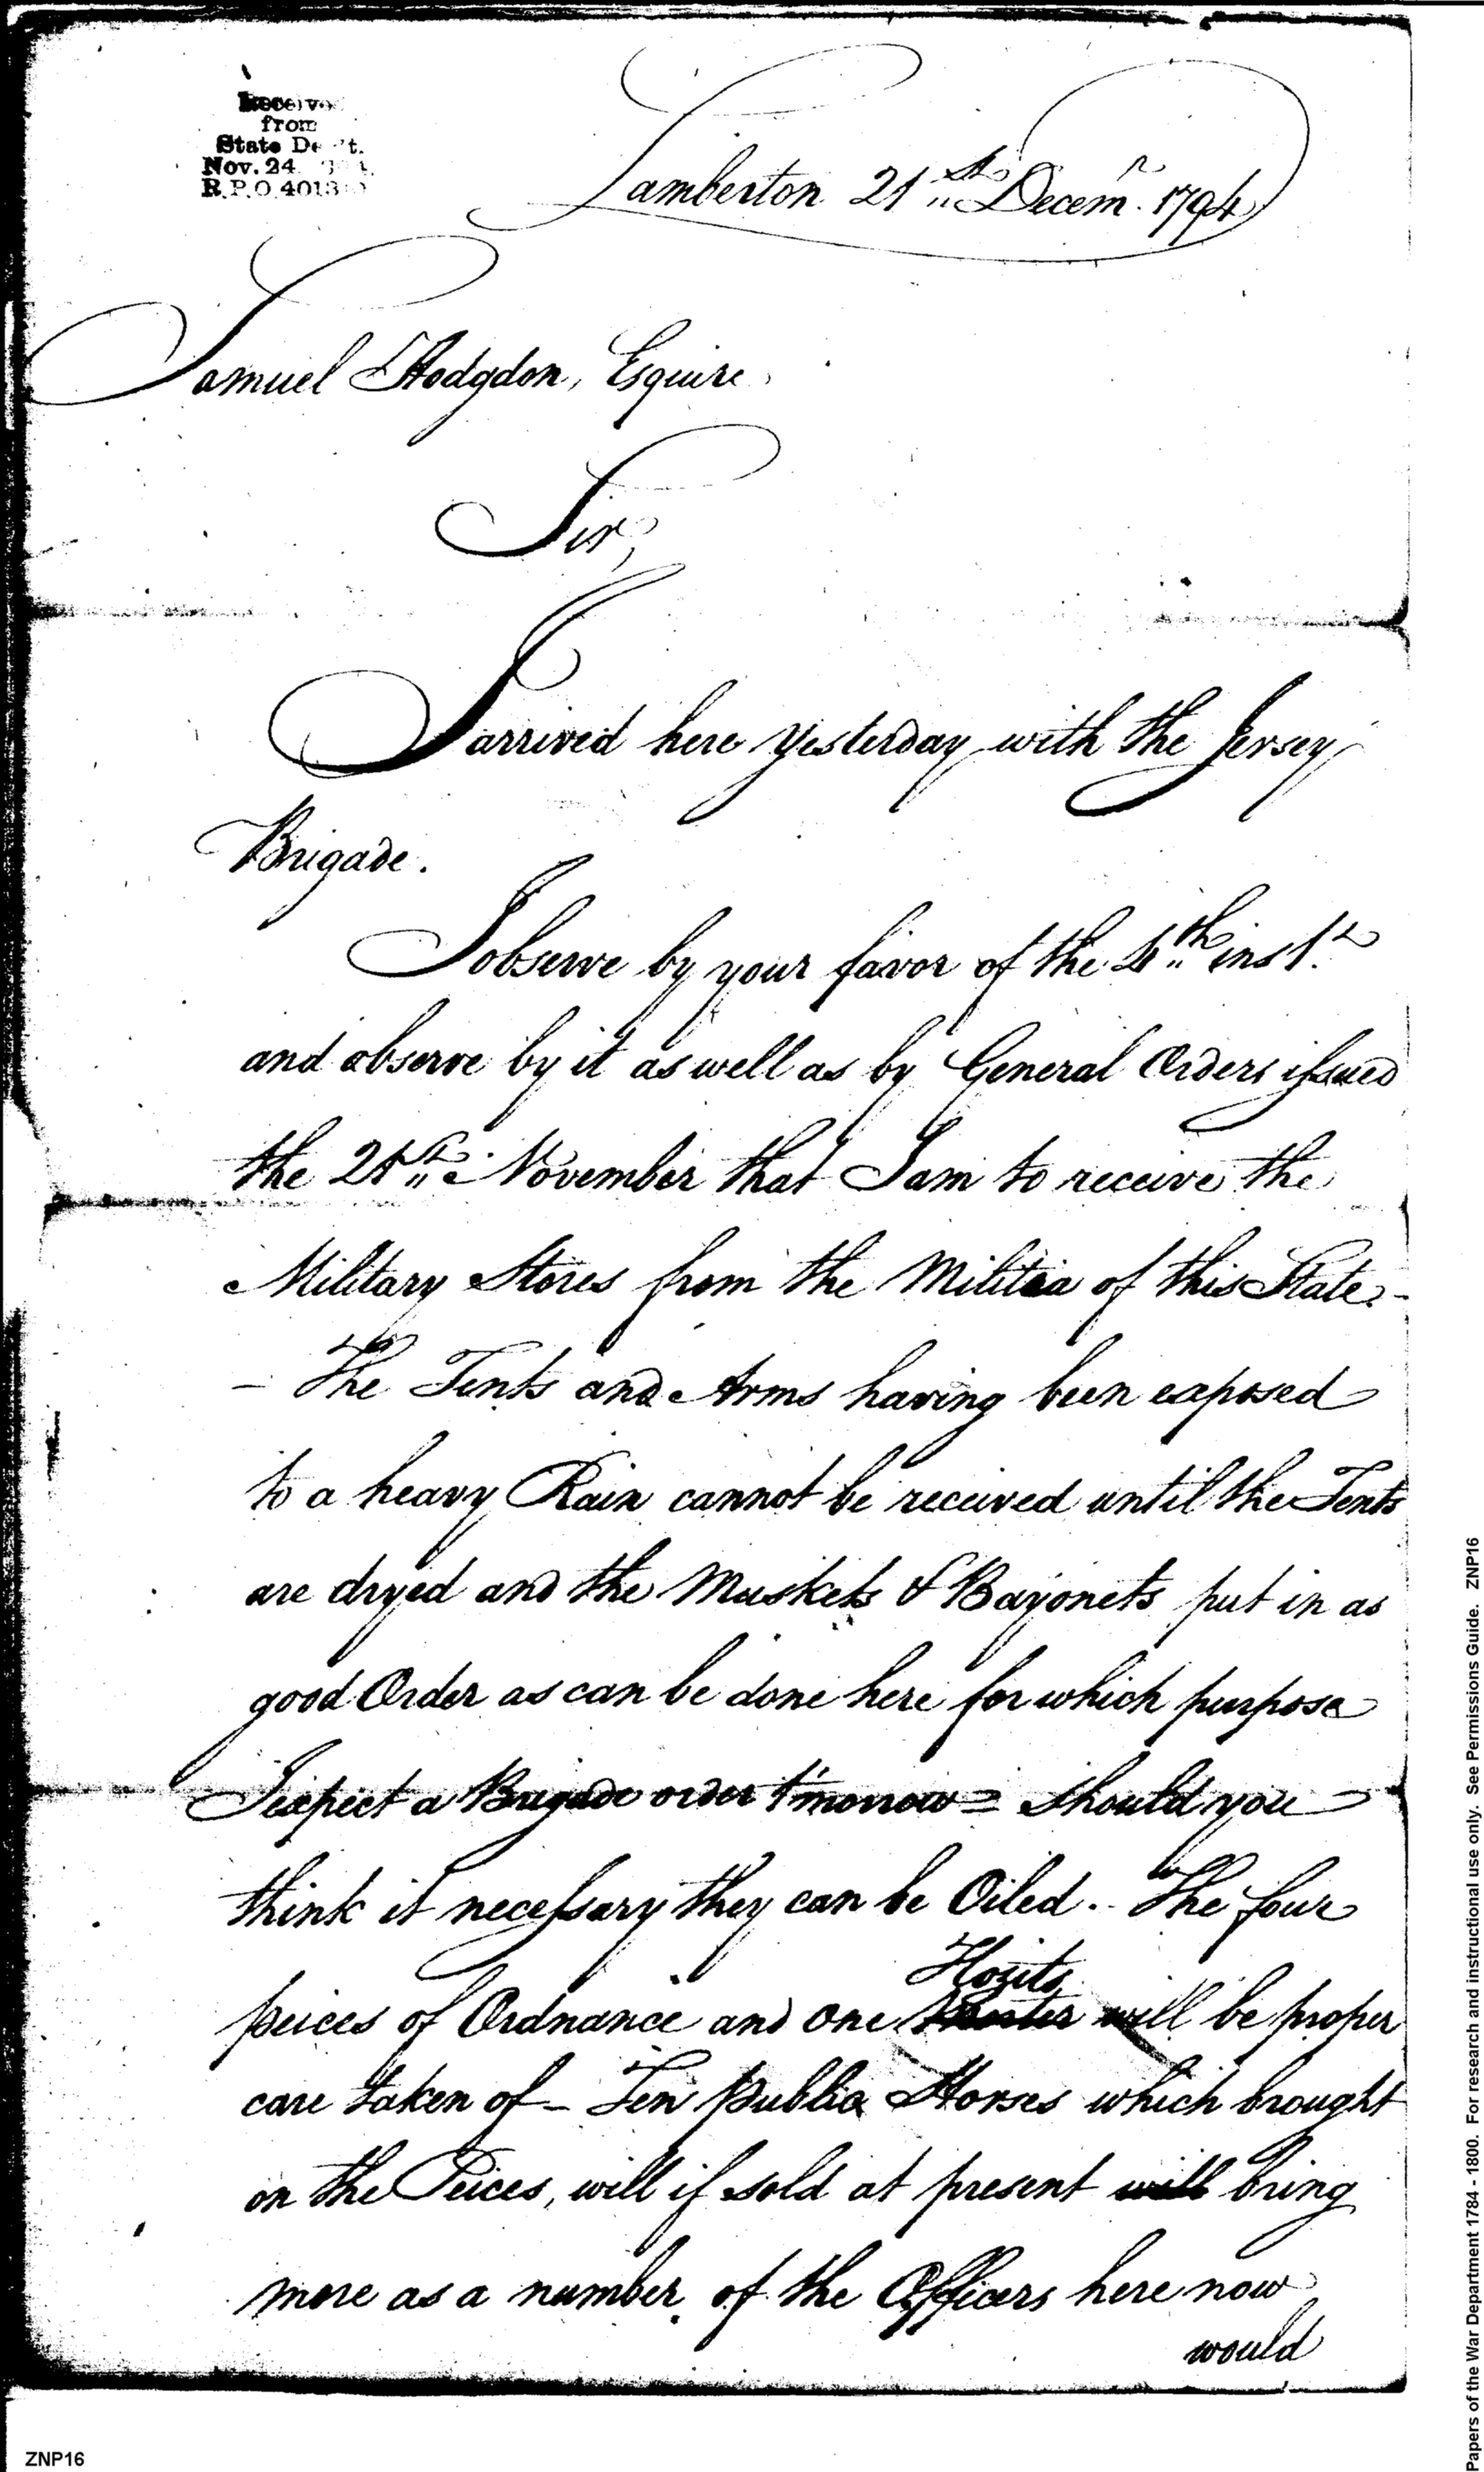 Received
from
State De't.
Nov. 24
R.P.O. 4013
Lamberton 21st Decemr. 1794
Samuel Hodgdon, Esquire
Sir,
I arrived here yesterday with the Jersey
Brigade.
I observe by your favor of the 4th inst.
and observe by it as well as by General Orders issued
the November that I am to receive the
Military Stores from the Militia of this State -
- The Tents and Arms having been exposed
to a heavy Rain cannot be received until the Tents
are dryed and the Muskets & Bayonets put in as
good Order as can be done here for which purpose
I expect a Brigade order t'morrow = should you
think it necessary they can be Oiled. The four
Hozits
peices of Ordnance and one will be proper
care taken of - Ten Public Horses which brought
on the Peices, will if sold at present will bring
more as a number of the Officers here now
would
ZNP16
Papers of the War Department 1784 - 1800. For research and instructional use only. See Permissions Guide. ZNP16